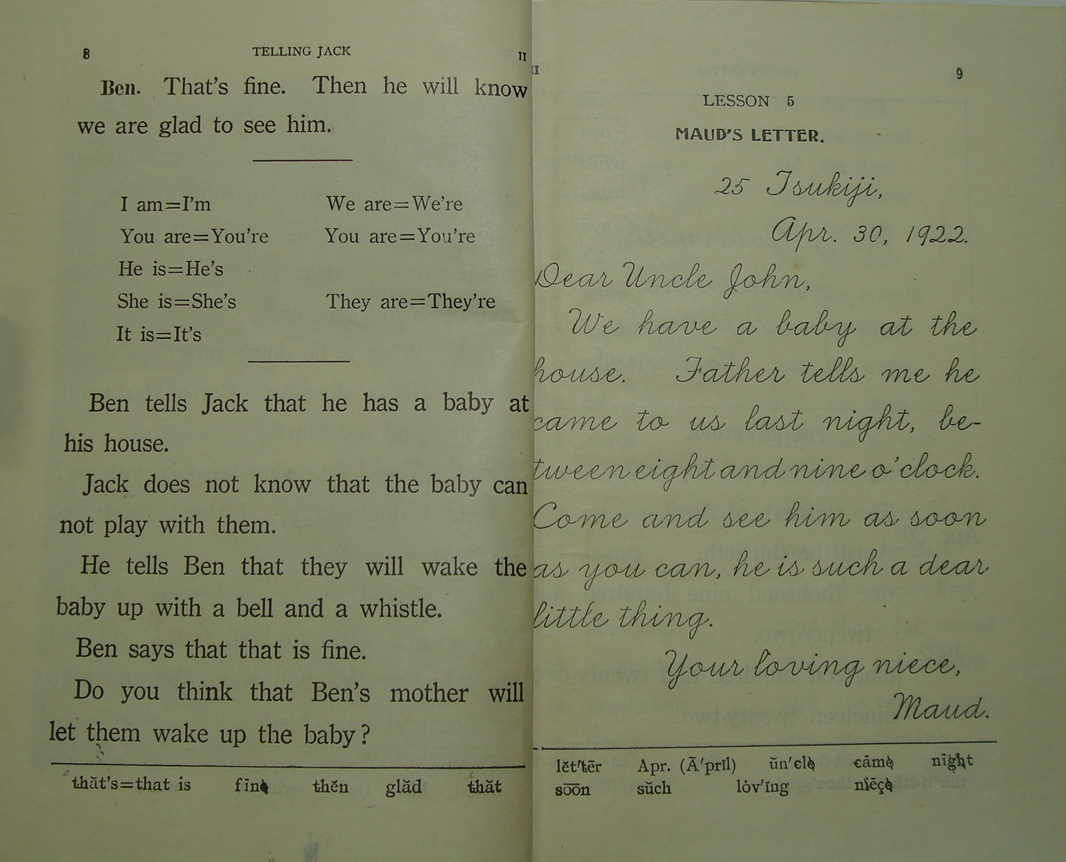 8 TELLING JACK II
Ben. That's fine. Then he will know
we are glad to see him.
I am=I'm We are=We're
You are=You're You are=You're
He is=He's
She is=She's They are=They're
It is=It's
Ben tells Jack that he has a baby at
his house.
Jack does not know that the baby can
not play with them.
He tells Ben that they will wake the
baby up with a bell and a whistle.
Ben says that that is fine.
Do you think that Ben's mother will
let them wake up the baby?
thăt's=that is fīne thĕn glăd thăt
II 9
LESSON 5
MAUD'S LETTER.
25 Tsukiji,
Apr. 30, 1922.
Dear Uncle John,
We have a baby at the
house. Father tells me he
came to us last night, be-
tween eight and nine o'clock.
Come and see him as soon
as you can, he is such a dear
little thing.
Your loving niece,
Maud.
lĕt'tẽr Apr. (Ā'prĭl) ŭn'cle cāme nīght
so͞on sŭch lȯv'ĭng niēçe